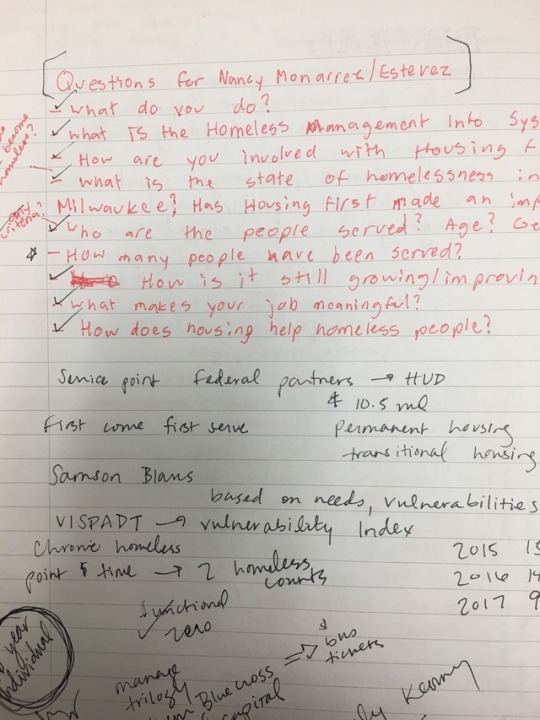 Questions for Nancy Monarrez/Estevez
- what do you do?
- what is the Homeless Management Info Sys
- How are you involved with Housing F
- what is the state of homelessness in
Milwaukee? Has Housing First made an imp
become
homeless?
criteria?
- who are the people served? Age? Ge
- How many people have been served?
How is it still growing/improvin
- what makes your job meaningful?
- How does housing help homeless people?
Service point Federal partners → HUD
$ 10.5 mil
First come first serve permanent housing
transitional housing
Samson Blaus
based on needs, vulnerabilities
VISPADT → vulnerability Index
Chronic homeless
2015 15
point & time → 2 homeless
counts
2016 14
2017 9
functional
zero
year
individual
$ bus
tickets
manage
trilogy
Blue cross
capital
Keanny